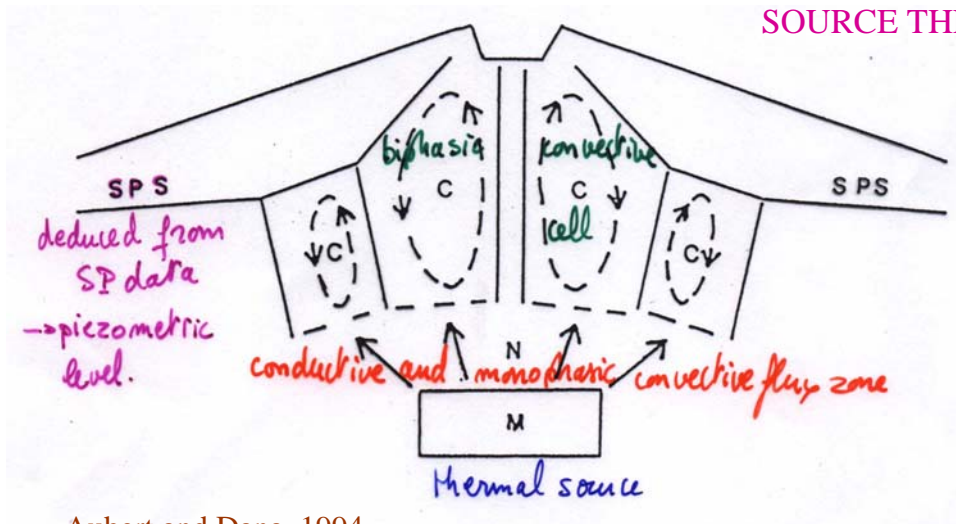 SOURCE THE
biphasic convective
C C
cell
SPS SPS
deduced from
SP data
→piezometric
level.
C C
N
conductive and monophasic convective flux zone
M
thermal source
Aubert and Dana, 1994